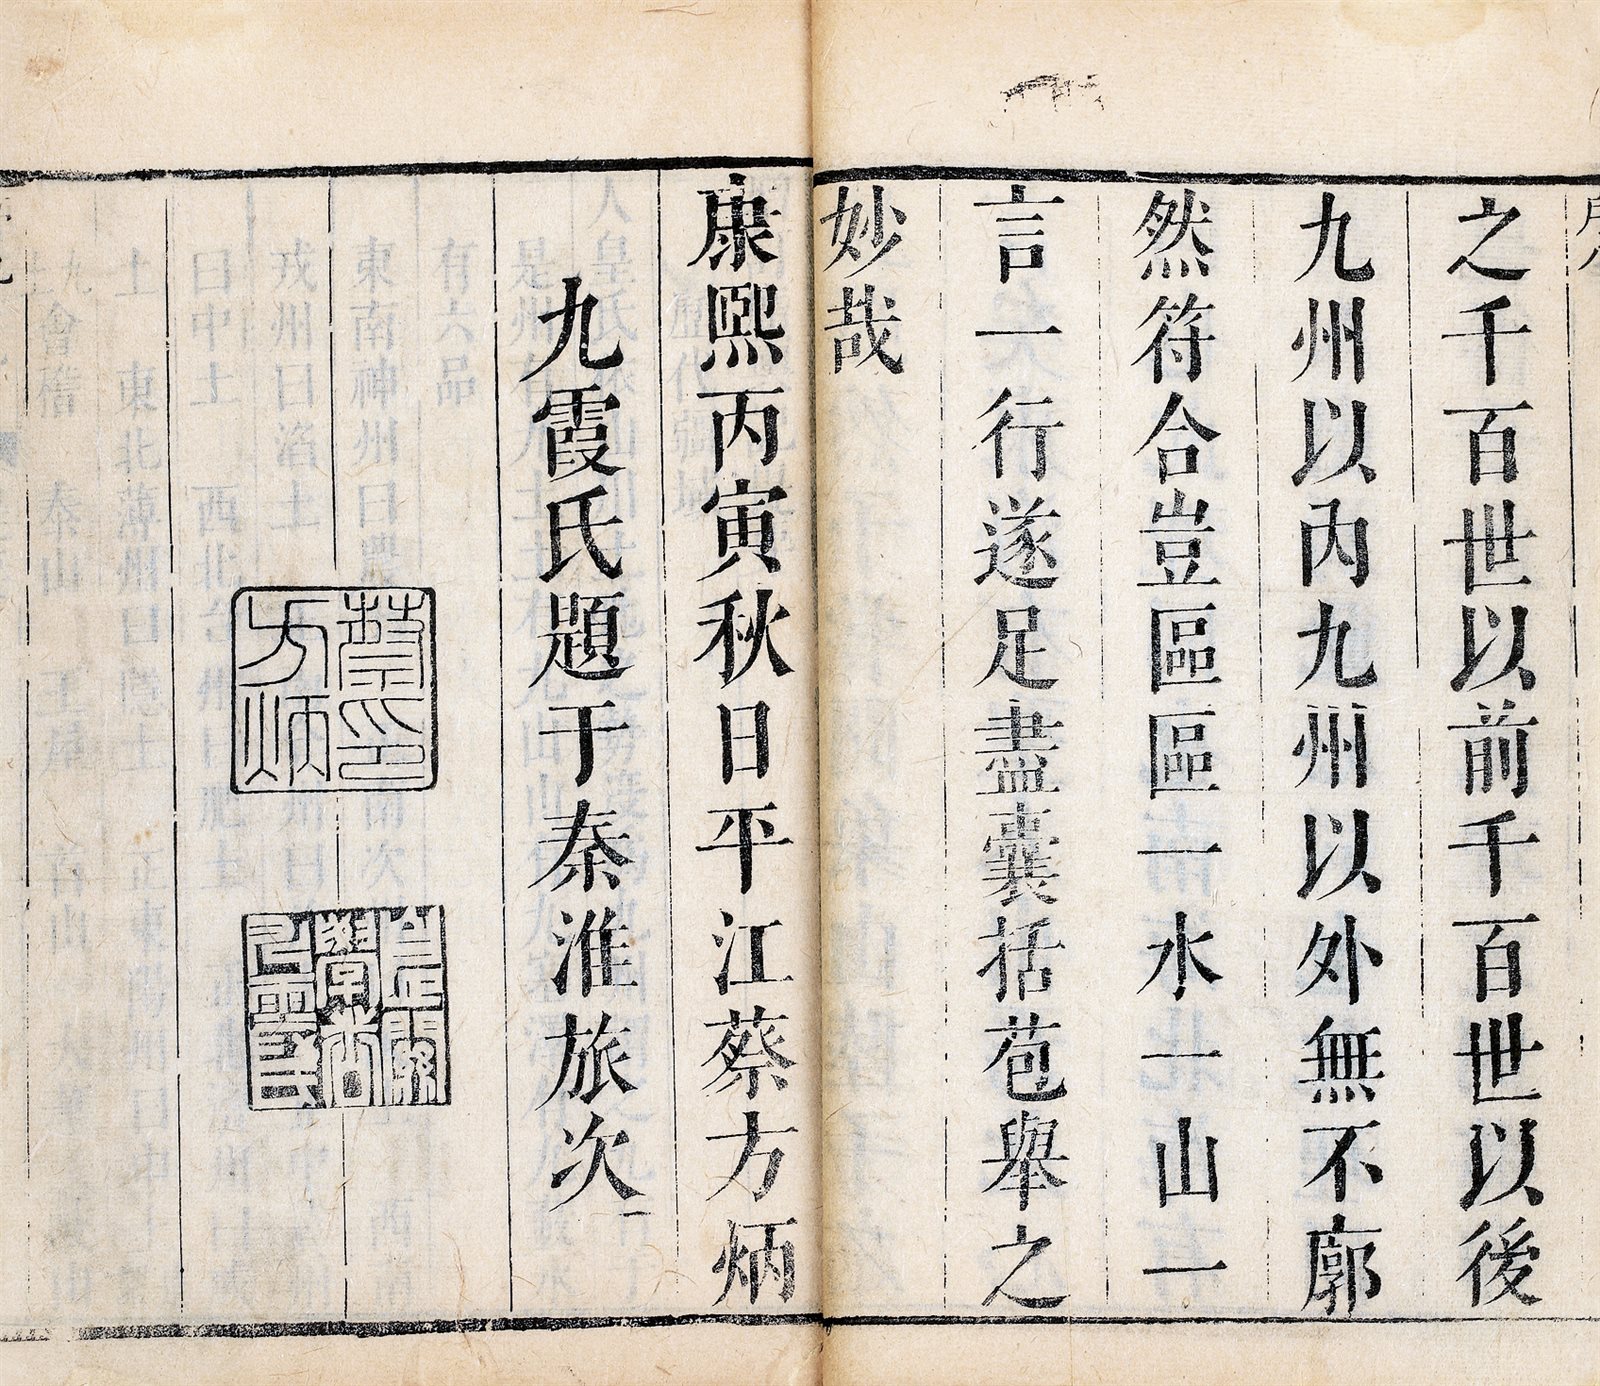 之千百世以前千百世以後
九州以內九州以外無不廓
然符合豈區區一水一山一
言一行遂足盡囊括苞舉之
妙哉
康熙丙寅秋日平江蔡方炳
九霞氏題于秦淮旅次
蔡印方炳